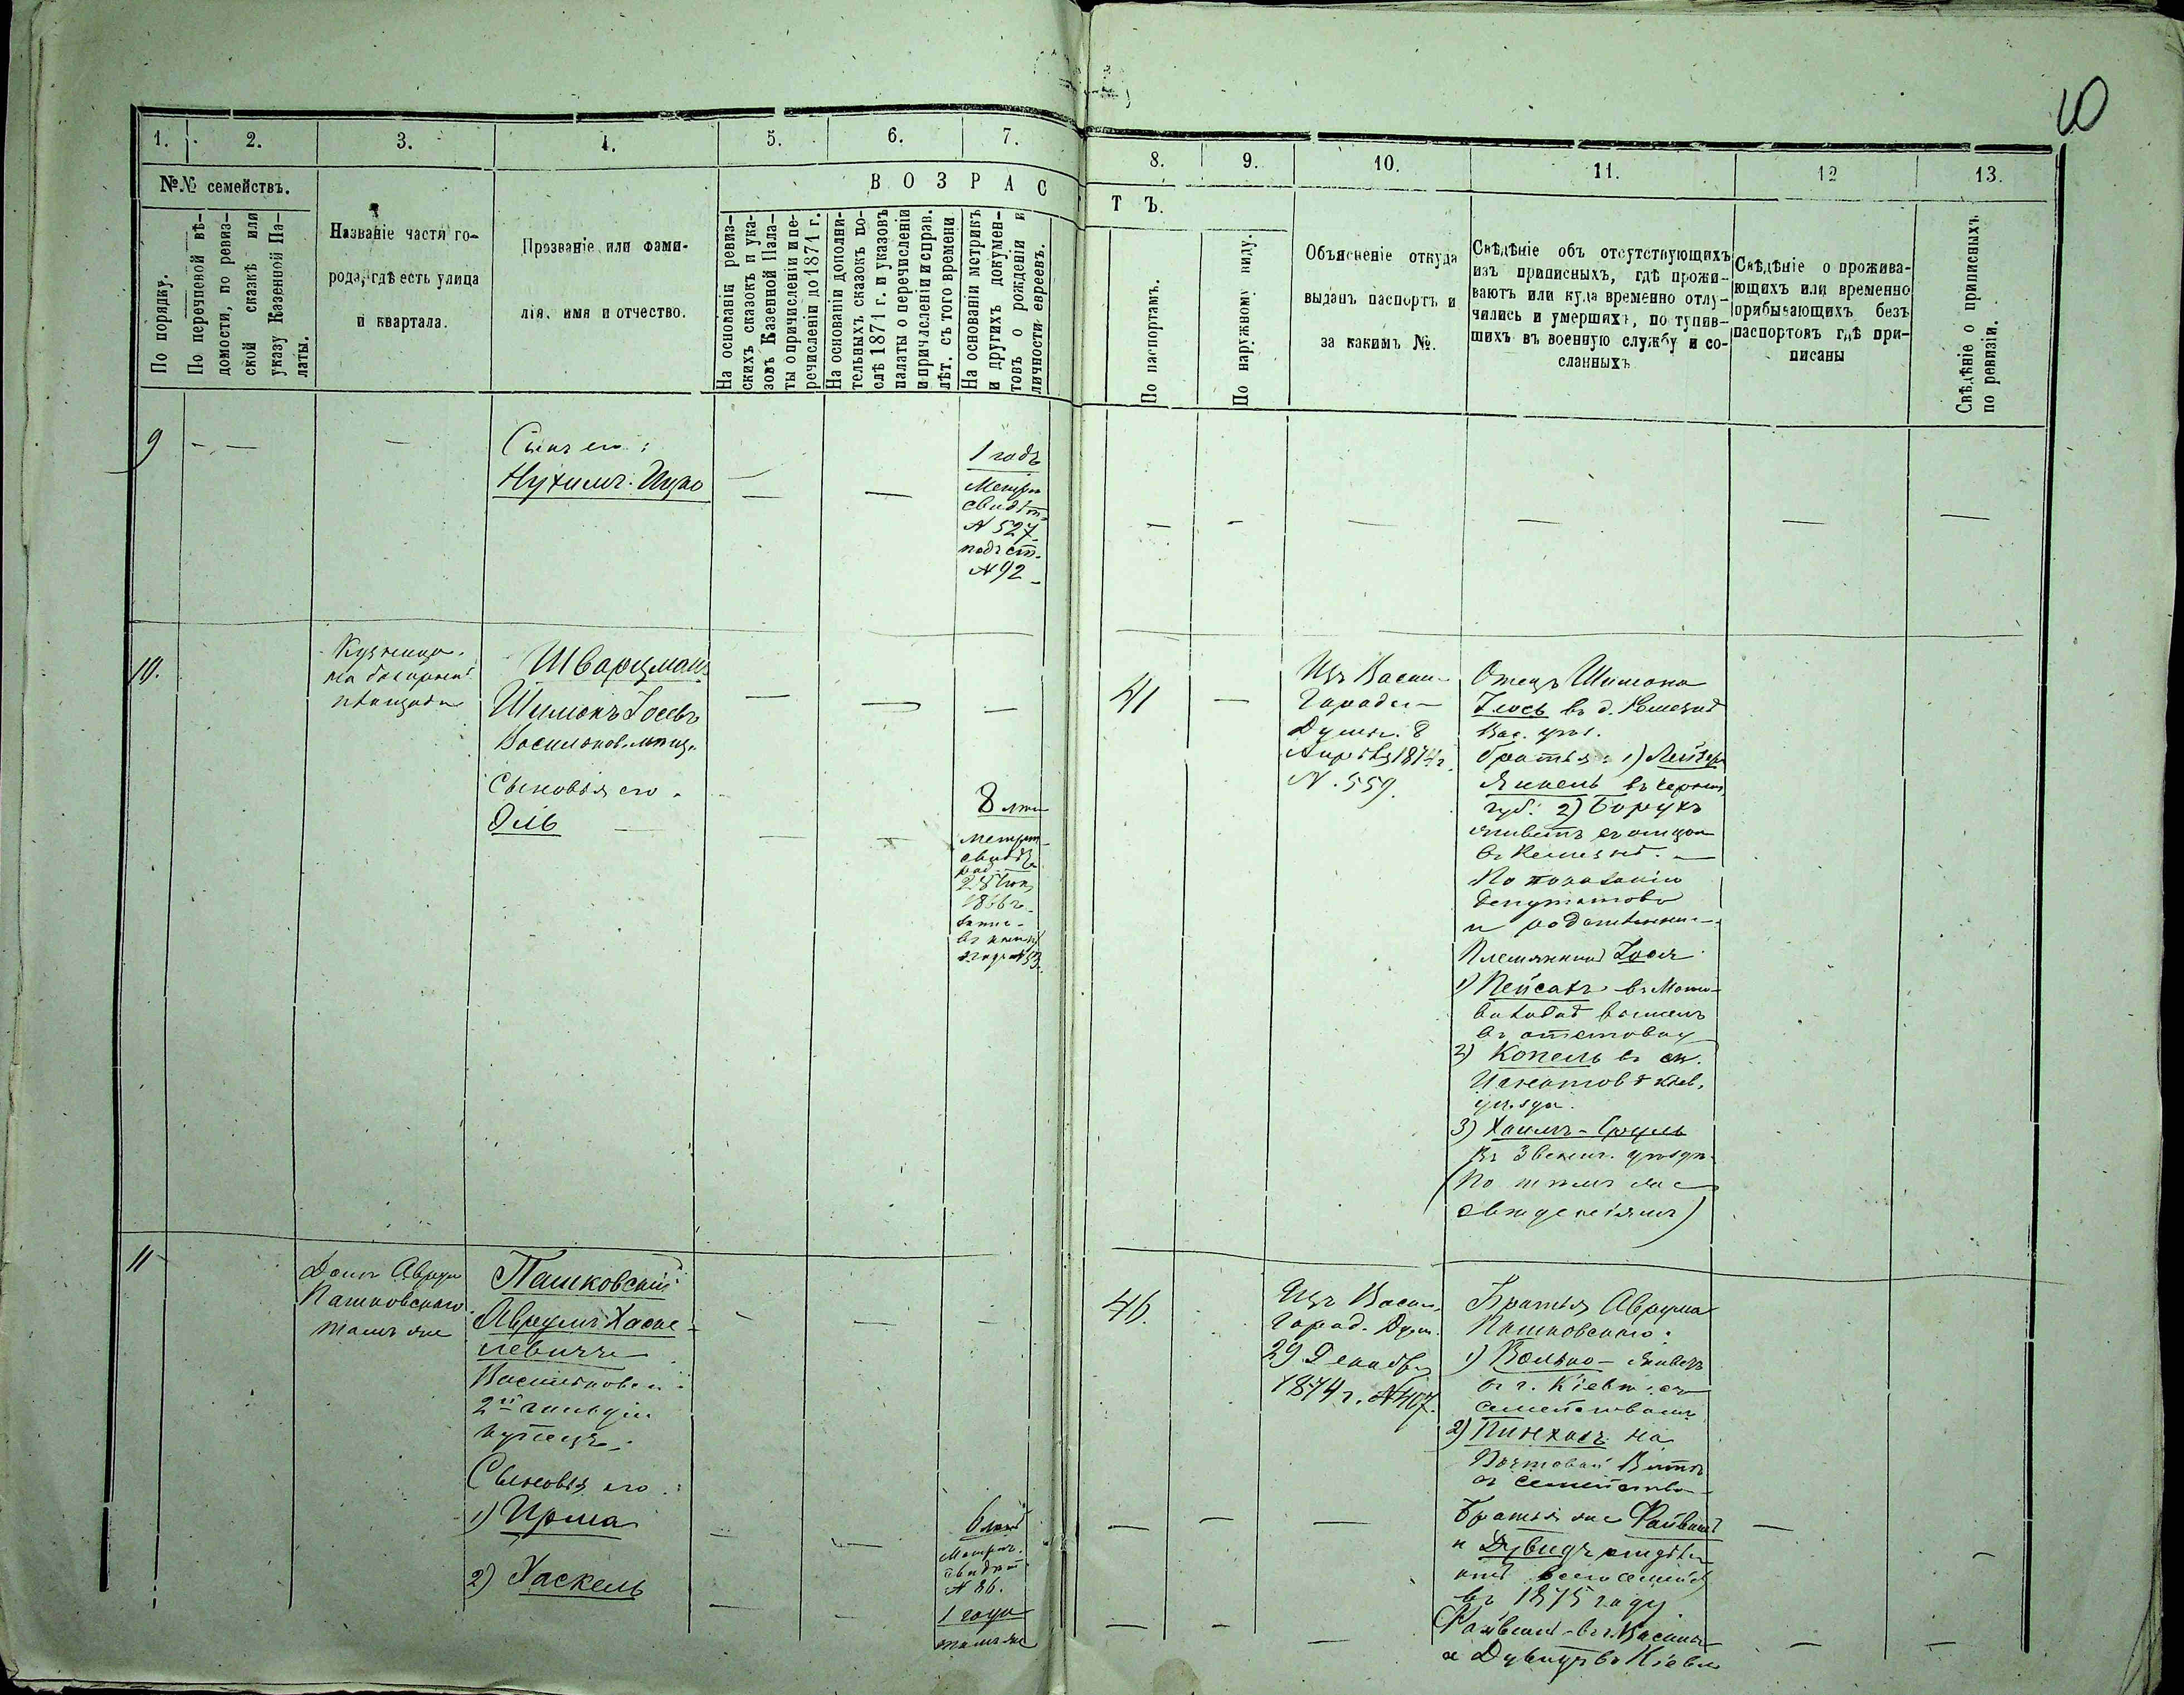 10
1. 2. 3. 4. 5. 6. 7. 8. 9. 10. 11. 12 13.
№№ семействъ.
В О З Р А С Т Ъ.
По порядку.
По перечневой вѣ-
домости, по ревиз-
ской сказкѣ или
указу Казенной Па-
латы.
Названіе части го-
рода, гдѣ есть улица
и квартала.
Прозваніе или фами-
лія, имя и отчество.
На основаніи ревиз-
скихъ сказокъ и ука-
зовъ Казенной Пала-
ты о причисленіи и пе-
речисленіи до 1871 г.
На основаніи дополни-
тельныхъ сказокъ по-
слѣ 1871 г. и указовъ
палаты о перечисленіи
и причисленіи и справ.
лѣт. съ того времени
На основаніи метрикъ
и другихъ докумен-
товъ о рожденіи и
личности евреевъ.
По паспортамъ.
По наружному виду.
Объясненіе откуда
выданъ паспортъ и
за какимъ №.
Свѣдѣніе объ отсутствующихъ
изъ приписныхъ, гдѣ прожи-
ваютъ или куда временно отлу-
чились и умершихъ, поступив-
шихъ въ военную службу и со-
сланныхъ
Свѣдѣніе о прожива-
ющихъ или временно
прибывающихъ безъ
паспортовъ гдѣ при-
писаны
Свѣдѣніе о приписныхъ
по ревизіи.
9
Сынъ его:
Нухимъ-Ицко
1 годъ
Метри
свидѣт
N 527
подъ ст.
N 92
10.
Кузница
на базарной
площади
Шварцманъ
Шимонъ Іосевъ
Сыновья его
8 лѣт
Метри
свидѣт
41
Изъ Васил
Городск
Думы 8
Апрѣля 1874 г.
N. 559.
Отецъ Шимона
Іось въ д.
Вас. уѣз.
братья: 1) Лейзер
Янкель въ Черниг
губ. 2) Борухъ
живетъ съ отцом
По показанію
депутатовъ
и родственник
Племянники Іося
1) Пейсахъ
2) Копель въ
Игнатовкѣ Кіев.
уѣзда.
3) Хаимъ-Сруль
Въ Звениг. уѣздѣ
(По тѣмъ же
свѣденіямъ)
11
Домъ Аврума
Пашковскаго
тамъ же
Пашковскій
Аврумъ Хаске-
левичъ
Васильковск
2й гильдіи
купецъ.
Сыновья его:
1) Ирма
6 лѣт
Метрич.
свидѣт
N 86.
2) Хаскель
1 года
тамъ же
46.
Изъ Васил
Город. Дум.
29 Декабря
1874 г. N 407.
Братья Аврума
Пашковскаго:
1) Волько - живетъ
въ г. Кіевѣ съ
семействомъ
2) Пинхасъ на
Почтовой Витѣ
съ семейство
Братья же Файвишъ
и Дувидъ
въ 1875 году
Файвишъ въ г. Васильк
а Дувидъ въ Кіевѣ